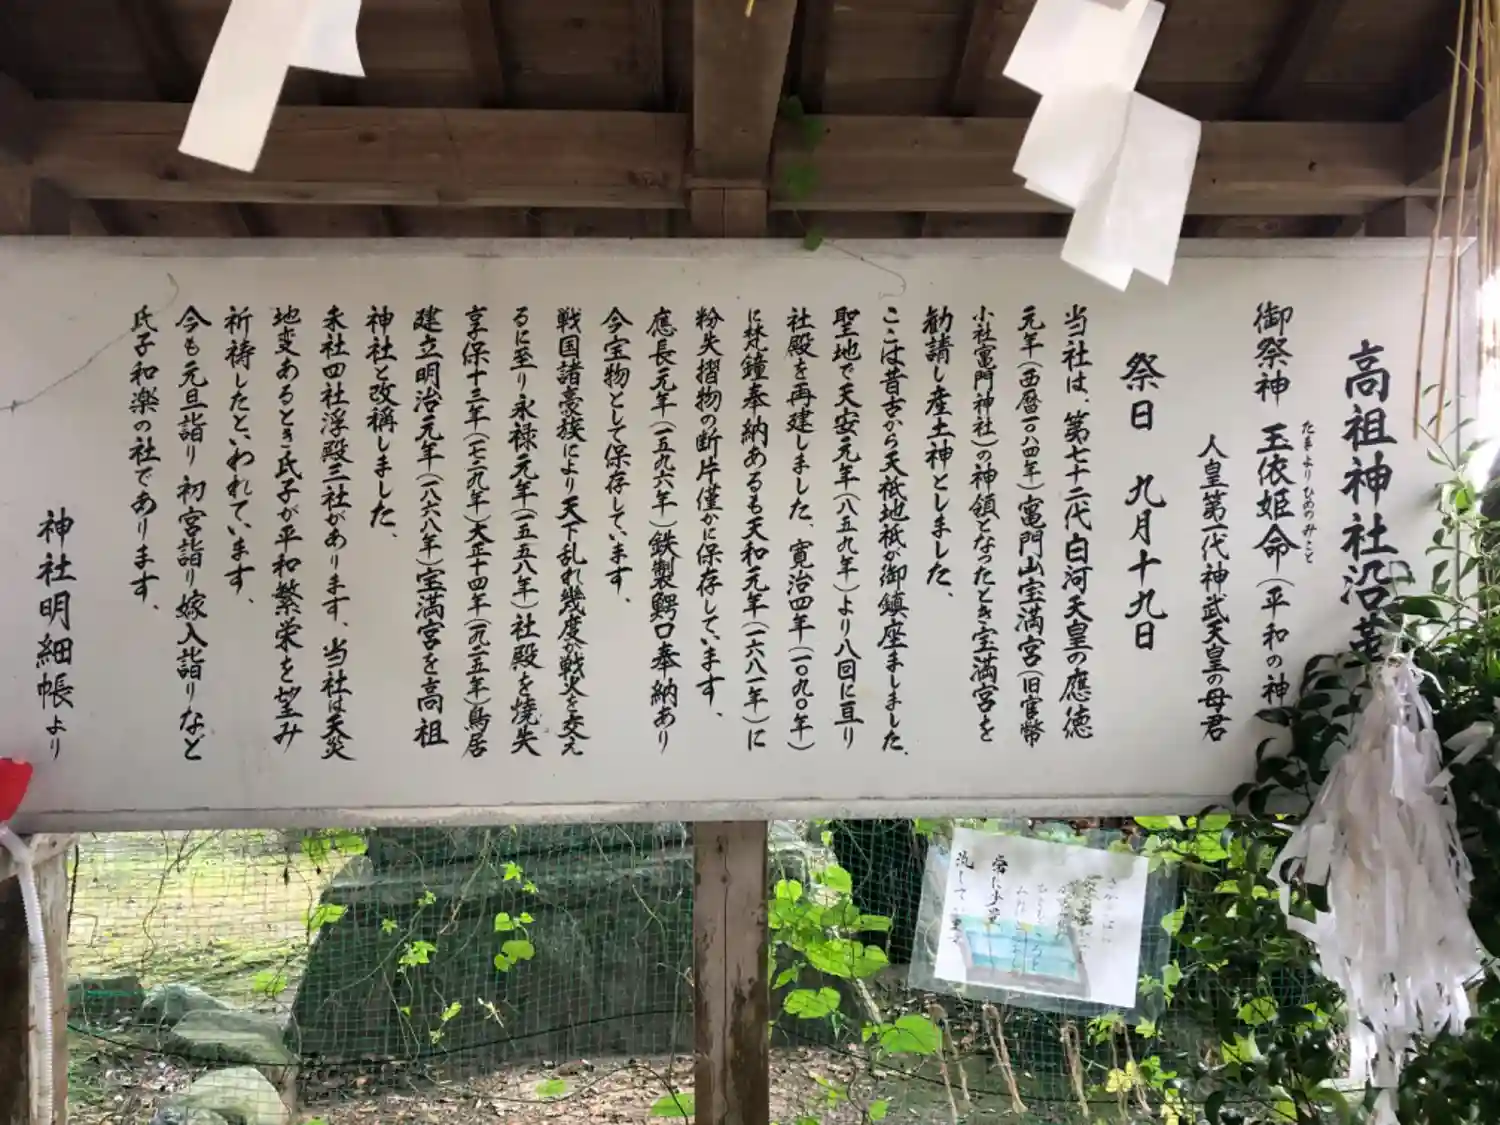 高祖神社沿革
御祭神 玉依姫命(平和の神
たまよりひめのみこと
人皇第一代神武天皇の母君
祭日 九月十九日
当社は、第七十二代白河天皇の應徳
元年(西暦一〇八四年)竃門山宝満宮(旧官幣
小社竃門神社)の神領となったとき宝満宮を
勧請し産土神としました、
ここは昔古から天祇地祇が御鎮座ましました、
聖地で天安元年(八五九年)より八回に亘り
社殿を再建しました、寛治四年(一〇九〇年)
に梵鐘奉納あるも天和元年(一六八一年)に
粉失摺物の断片僅かに保存しています、
應長元年(一五九六年)鉄製鰐口奉納あり
今宝物として保存しています、
戦国諸豪族により天下乱れ幾度か戦火を交え
るに至り永禄元年(一五五八年)社殿を焼失
享保十三年(一七二九年)大正十四年(一九二五年)鳥居
建立明治元年(一八六八年)宝満宮を高祖
神社と改稱しました、
末社四社浮殿三社があります、当社は天災
地変あるとき氏子が平和繁栄を望み
祈祷したといわれています、
今も元旦詣り初宮詣り嫁入詣りなど
氏子和楽の社であります、
神社明細帳より
常に少量
流して